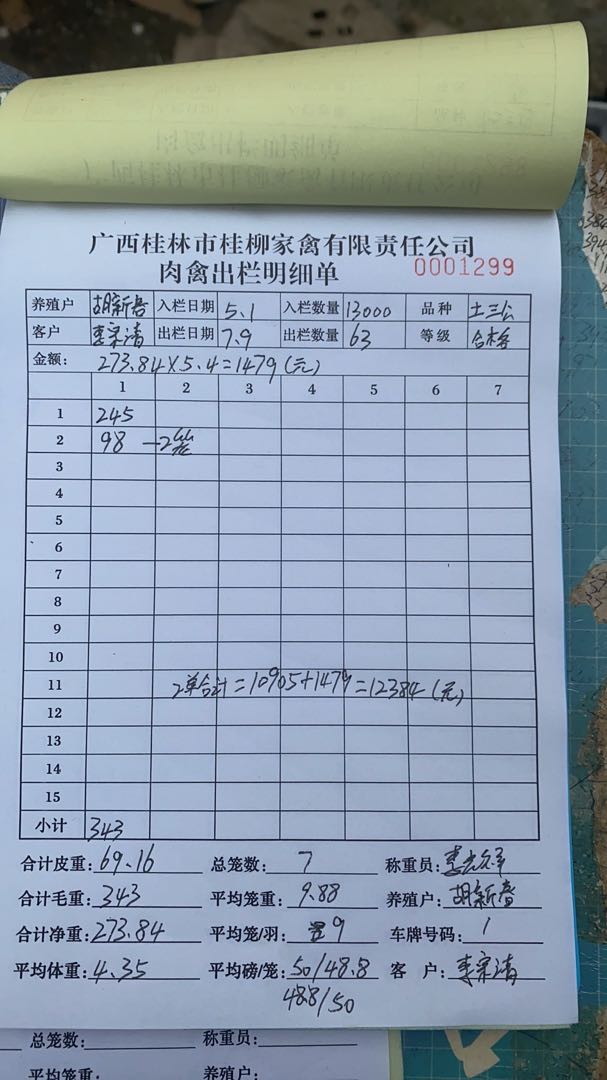 广西桂林市桂柳家禽有限责任公司
肉禽出栏明细单 0001299
养殖户 胡新春 入栏日期 5.1 入栏数量 13000 品种 土三公
客户 李宗清 出栏日期 7.9 出栏数量 63 等级 合格
金额: 273.84×5.4=1479(元)
1 2 3 4 5 6 7
1 245
2 98 —2笼
3
4
5
6
7
8
9
10
11 2单合计=10905+1479=12384(元)
12
13
14
15
小计 343
合计皮重: 69.16 总笼数: 7 称重员:
合计毛重: 343 平均笼重: 9.88 养殖户: 胡新春
合计净重: 273.84 平均笼/羽: 9 车牌号码: 1
平均体重: 4.35 平均磅/笼: 50/48.8 客户: 李宗清
488/50
总笼数: 称重员:
平均笼重: 养殖户: